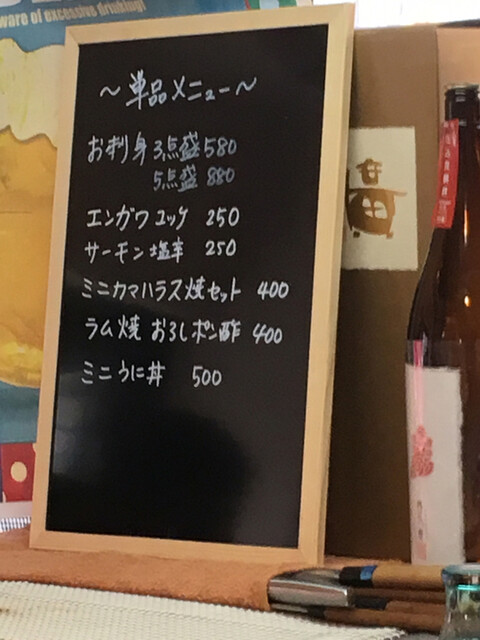 ware of excessive drinking!
～単品メニュー～
お刺身3点盛580
5点盛 880
エンガワユッケ 250
サーモン塩辛 250
ミニカマハラス焼セット 400
ラム焼 おろしポン酢 400
ミニうに丼 500